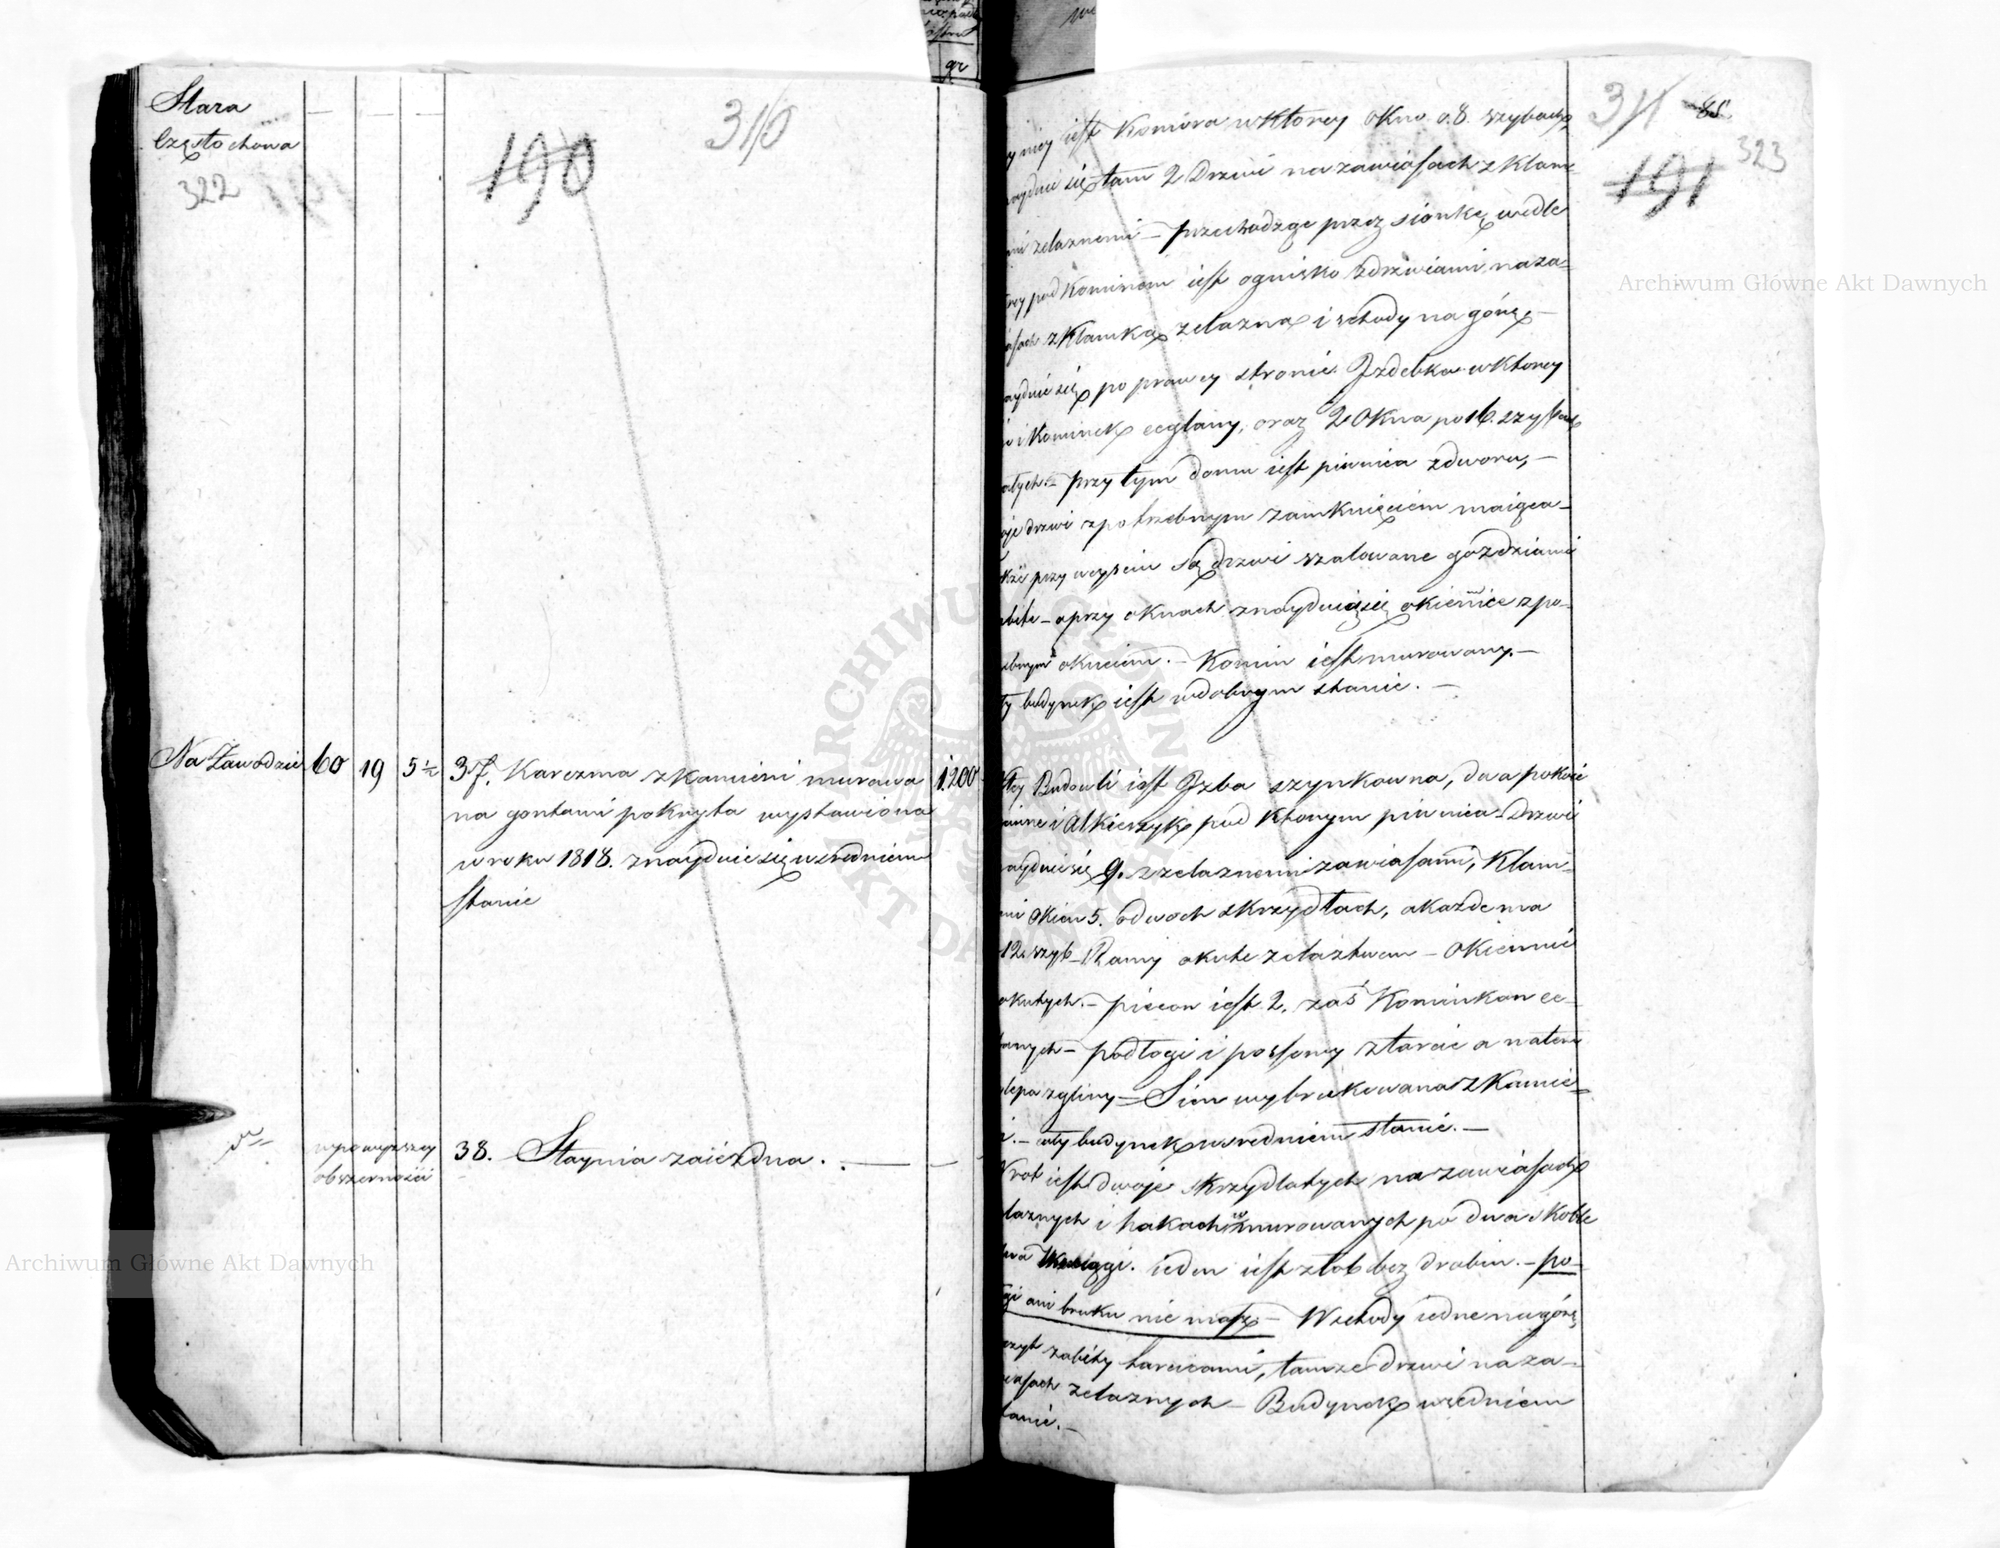 Stara
Częstochowa
322
190
310
Na Zawodzie 60 19 5½ 37. Karczma z Kamieni murowa 1.200
na gontami pokryta wystawiona
w roku 1818. znayduie się w sredniem
stanie
wpowyzszey
obszerności
38. Staynia zaiezdna.
gr
311 85.
323
191
iest Komora w Ktorey okno o.8. szybach,
się tam 2 Drzwi na zawiasach z Klam-
zelaznemi – przechodząc przez sionkę wedle
pod Kominem iest ognisko z drzwiami na za-
z Klamką zelazną i schody na górę –
się po prawey stronie Izdebka w Ktorey
i Kominek ceglany, oraz 2 Okna po 16. szybach
przy tym domu iest piwnica z dworu, –
drzwi z potrzebnym zamknięciem maiąca –
przy weysciu są drzwi szalowane gózdziami
– a przy oknach znayduią się okiennice z po-
okuciem. – Komin iest murowany. –
budynek iest w dobrym stanie. –
Budowli iest Izba szynkowna, dwa pokoie
i Alkierzyk pod Ktorym piwnica – Drzwi
9. z zelaznemi zawiasami, Klam-
Okien 5. o dwoch skrzydłach, a kazde ma
12 szyb – Ramy okute zelaztwem – Okiennic
okutych. – piecow iest 2. zaś Kominkow ce-
– podłogi i possowy z tarcic a na tem
z gliny – Sien wybrukowana z Kamie-
– cały budynek w srednim stanie. –
Wrot iest dwoje skrzydlatych na zawiasach
i hakach wmurowanych po dwa skoble
ieden iest złob bez drabin. – po-
ani bruku nie masz – Wschody iedne na górę,
zabity tarcicami, tamze drzwi na za-
zelaznych – Budynek w sredniem
stanie. –
Archiwum Główne Akt Dawnych
Archiwum Główne Akt Dawnych
ARCHIWUM GŁÓWNE AKT DAWNYCH